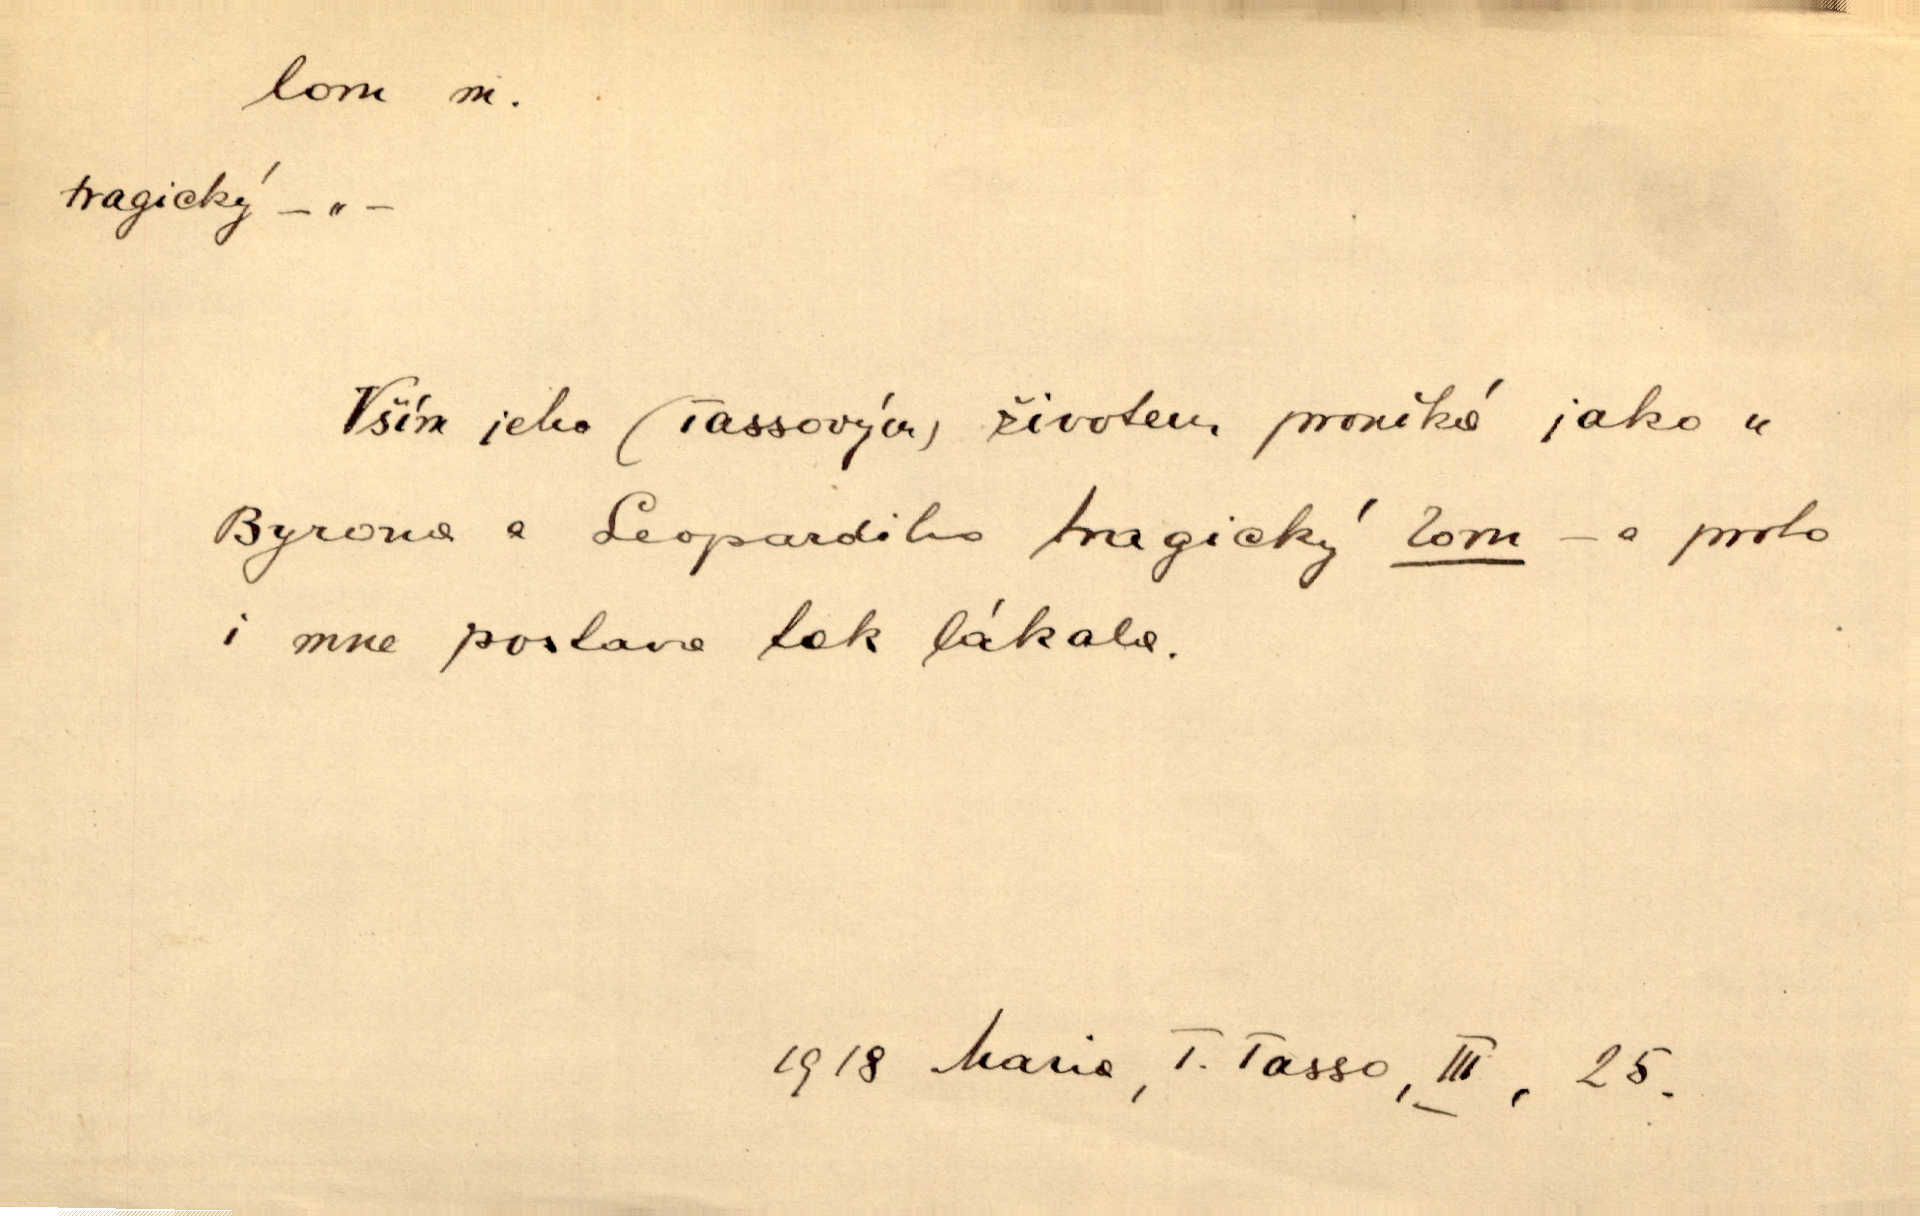 lom m.
tragický – " –
Vším jeho (Tassovým) životem proniká jako u
Byrona a Leopardiho tragický lom – a proto
i mne postava tak lákala.
1918 Maria, T. Tasso, III, 25.